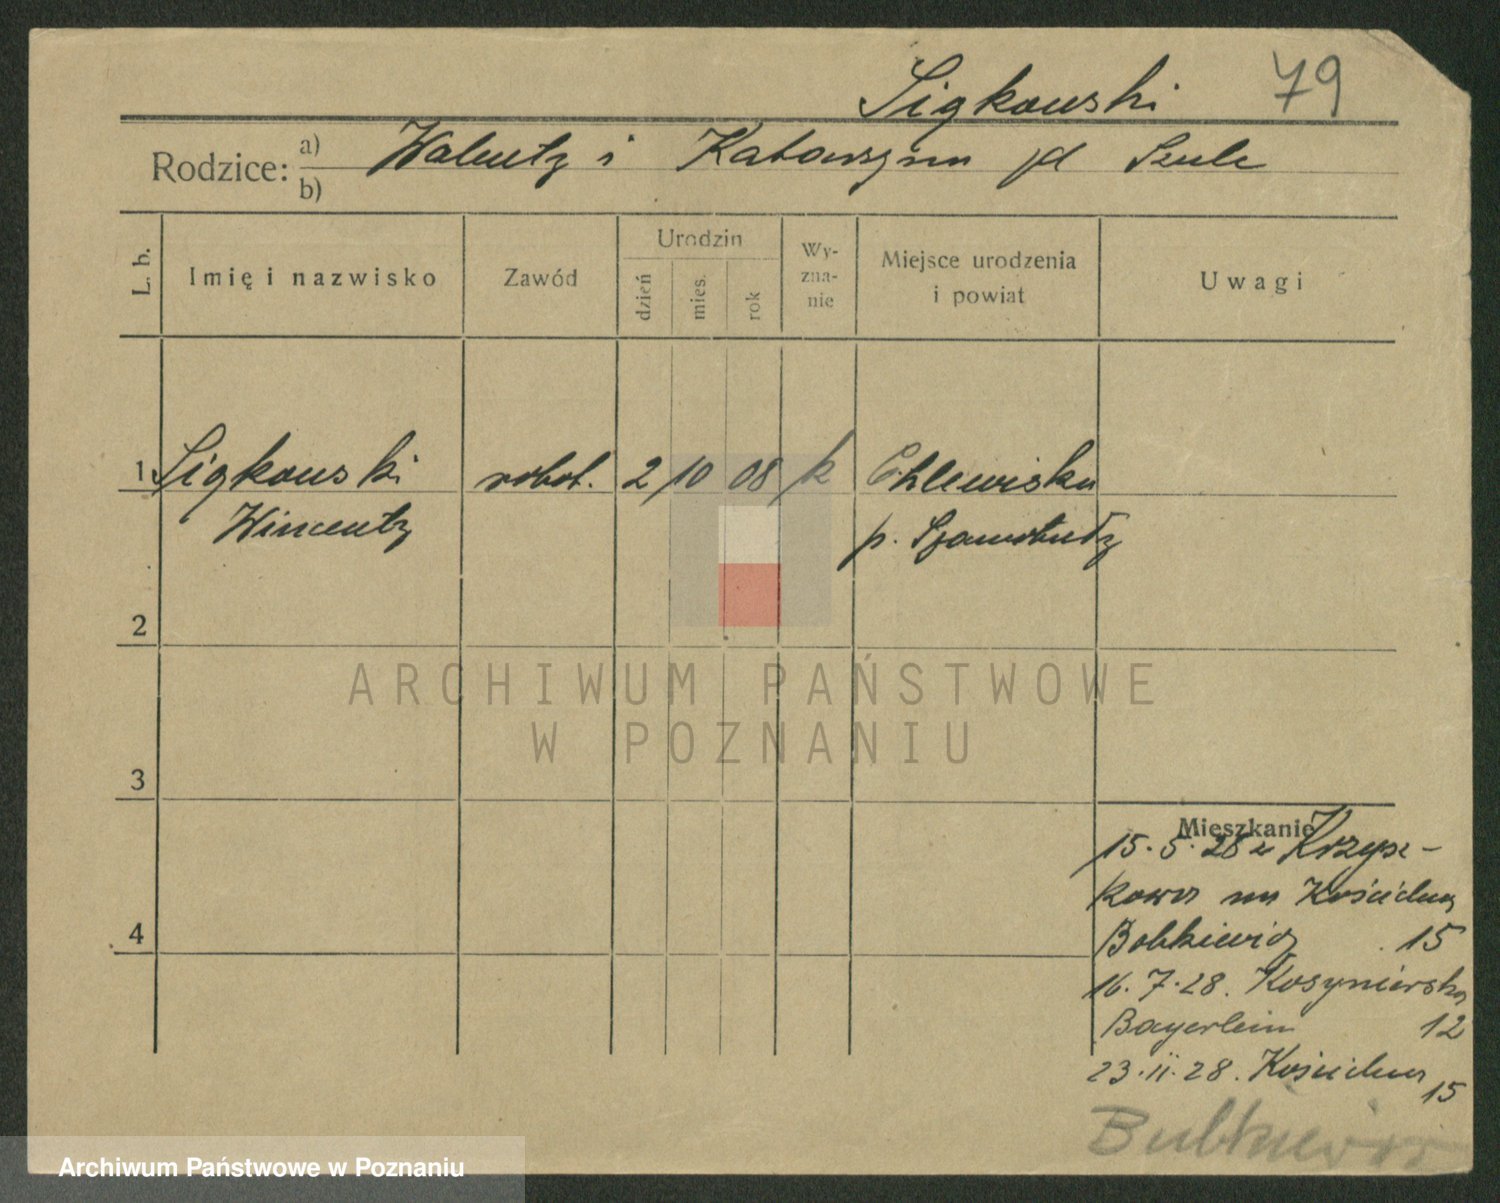 Sigkowski 79
Rodzice: a) Walenty i Katarzyna
b)
L. b.
Imię i nazwisko
Zawód
Urodzin
dzień
mies.
rok
Wy-
zna-
nie
Miejsce urodzenia
i powiat
Uwagi
1 Sigkowski robot. 2 10 08 k Chlewiska
Wincenty p. Szamotuły
2
ARCHIWUM PAŃSTWOWE
W POZNANIU
3
Mieszkanie
15.5.28 z Krzysz-
kowa na Kościelną
4
Bobkiewicz 15
16.7.28. Kosynierska
Bayerlein 12
23.II.28. Kościelna
15
Archiwum Państwowe w Poznaniu